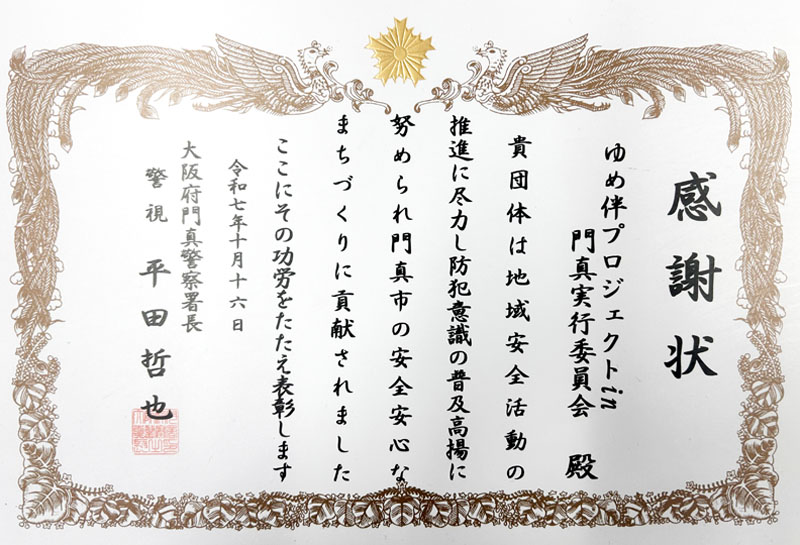 感謝状
ゆめ伴プロジェクトin
門真実行委員会 殿
貴団体は地域安全活動の
推進に尽力し防犯意識の普及高揚に
努められ門真市の安全安心な
まちづくりに貢献されました
ここにその功労をたたえ表彰します
令和七年十月十六日
大阪府門真警察署長
警視 平田哲也